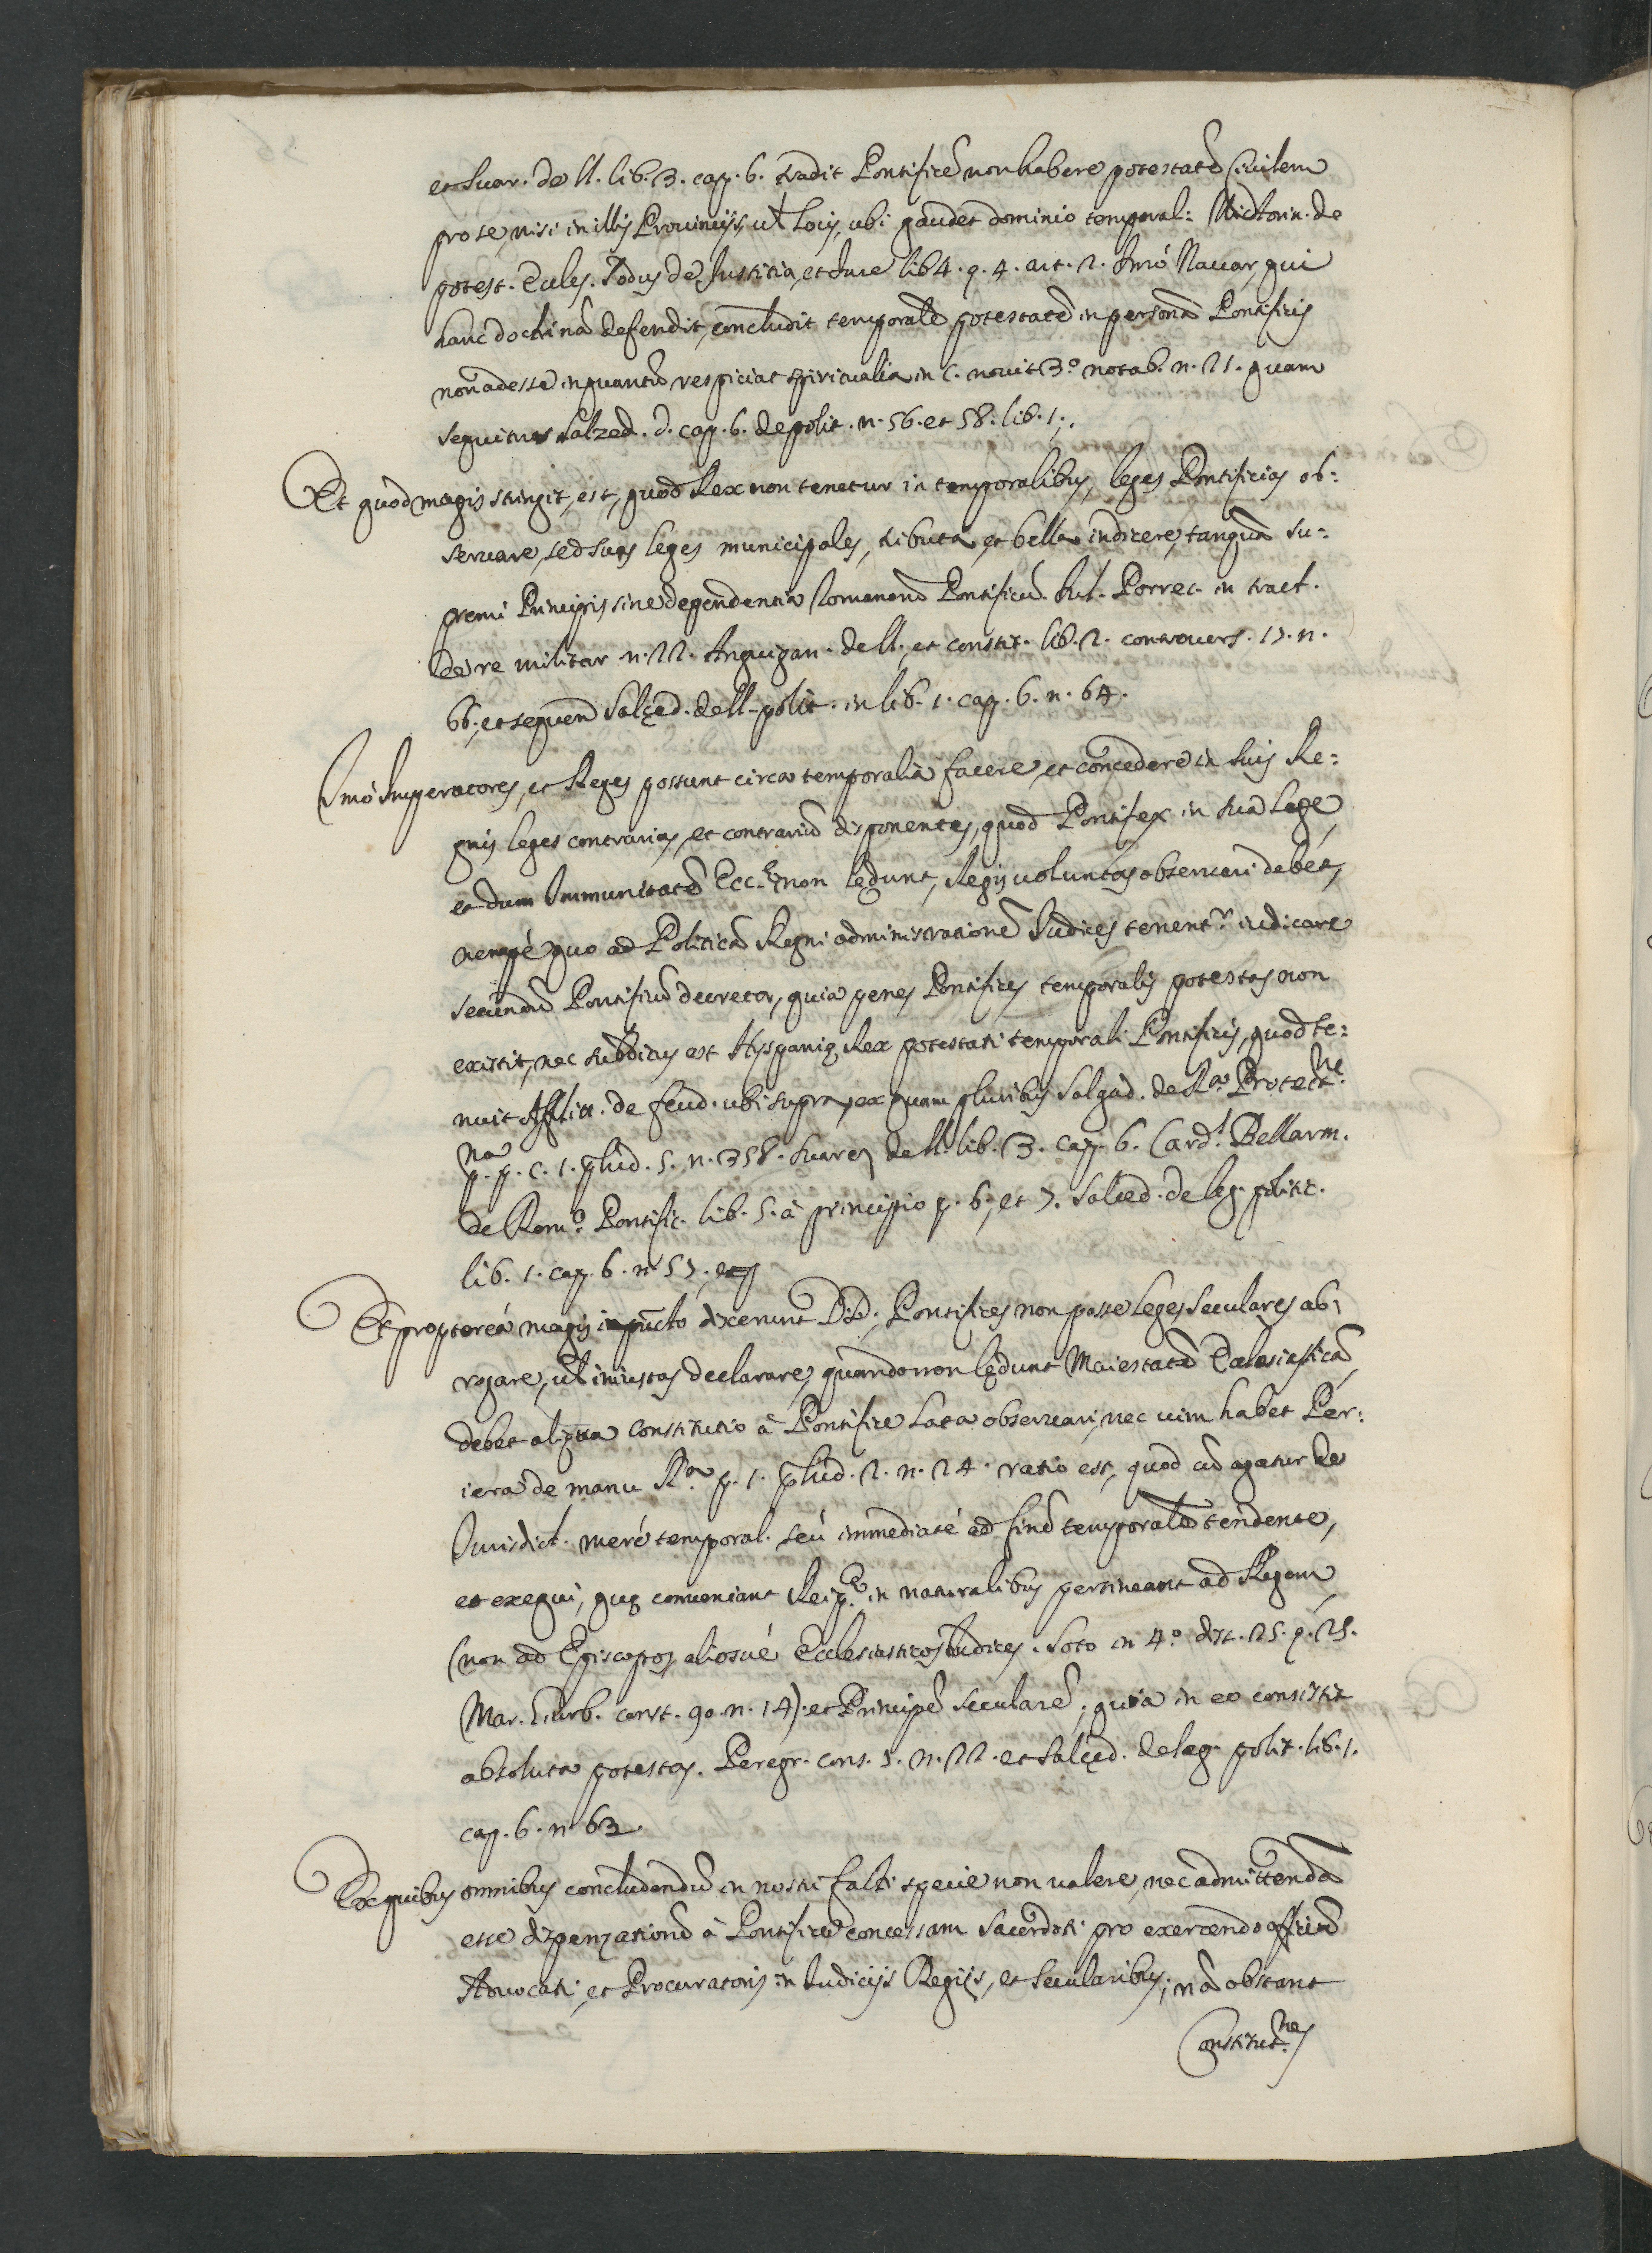 et Suar. de ll. lib. 3. cap. 6. tradit Pontificẽ non habere potestatẽ Ciuilem
pro se, nisi in illis Prouincijs, ut Locis, ubi gaudet dominio temporal: Victorin. de
potest. Eccles. Sodus de Justitia, et Jure lib 4. q. 4. art. 2. Imò Nauar, qui
hanc doctrinã defendit, concludit temporalẽ potestatẽ in personã Pontificis
non adesse in quantũ respiciat spiritualia in C. nouit 3.º notab. n. 25. quam
sequitur Salzed. d. cap. 6. de polit. n. 56. et 58. lib. 1;.
Et quòd magis stringit, est, quod Rex non tenetur in temporalibus, leges Pontificias ob:
seruare, sed suas leges municipales, tributa, et bella indicere, tanquã su:
premi Principis sine dependentia Romanorũ Pontificũ. Jul. Porrec. in tract.
de re militar n. 22. Anguian. de ll. et constit. lib. 2. controuers. 17. n.
66, et sequen Salçed. de ll. polit. in lib. 1. cap. 6. n. 64.
Imò Imperatores, et Reges possunt circa temporalia facere, et concedere in suis Re:
gnis leges contrarias, et contrariũ disponentes, quod Pontifex in sua lege,
et dum Immunitatẽ Ecc.ę non lędunt, Regis uoluntas obseruari debet,
nempè quo ad Politicã Regni administrationẽ Judices tenent.r iudicare
secundũ Pontificũ decreta, quia penes Pontifices temporalis potestas non
existit, nec subditus est Hyspanię Rex potestati temporali Pontificis, quod te:
nuit Afflitt. de feud. ubi supra, ex quam pluribus Salgad. de R.a Protect.ne
p. p. c. 1. p̃lud. 5. n. 358. Suarez de ll. lib. 3. cap. 6. Card.l Bellarm.
de Rom.º Pontific. lib. 5. à principio q. 6, et 7. Salced. de leg. politic.
lib. 1. cap. 6. n. 57,
Et proptereà magis in pũcto dixerunt DD; Pontifices non posse leges seculares ab:
rogare, uł iniustas declarare, quando non lędunt Maiestatẽ Ecclesiasticã,
debet aliqua Constitutio à Pontifice lata obseruari, nec uim habet Per:
iera de manu R.a p. 1. p̃lud. 2. n. 24. ratio est, quod cũ agatur de
Jurisdict. merè temporal. seù immediatè ad finẽ temporalẽ tendente,
et exequi, quę conueniant Reip.ę in naturalibus pertineant ad Regem
(non ad Episcopos, aliosuè Ecclesiasticos Judices. Soto in 4.º dist. 25. q. 25.
Mar. Giurb. const. 90. n. 14). et Principẽ secularẽ; quia in eo consistit
absoluta potestas. Peregr. cons. 5. n. 22. et Salçed. de leg. polit. lib. 1.
cap. 6. n. 63.
Ex quibus omnibus concludendũ in nostri facti specie non ualere, nec admittendã
esse dispenzationẽ à Pontifice concessam Sacerdoti pro exercendo officiũ
Aduocati, et Procuratoris in Judicijs Regijs, et Secularibus; nã obstant
Constitut.nes